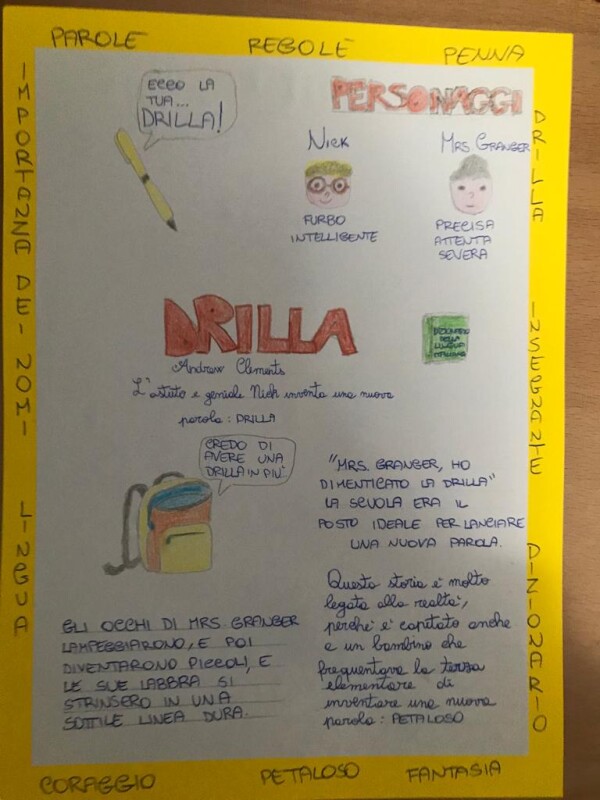 PAROLE
REGOLE
PENNA
IMPORTANZA DEI NOMI
LINGUA
ECCO LA
TUA...
DRILLA!
PERSONAGGI
NICK
FURBO
INTELLIGENTE
MRS GRANGER
PRECISA
ATTENTA
SEVERA
DRILLA
Andrew Clements
L'astuto e geniale Nick inventa una nuova
parola: DRILLA
DIZIONARIO
DELLA
LINGUA
ITALIANA
CREDO DI
AVERE UNA
DRILLA IN PIÙ
"MRS. GRANGER, HO
DIMENTICATO LA DRILLA"
LA SCUOLA ERA IL
POSTO IDEALE PER LANCIARE
UNA NUOVA PAROLA.
GLI OCCHI DI MRS GRANGER
LAMPEGGIARONO, E POI
DIVENTARONO PICCOLI, E
LE SUE LABBRA SI
STRINSERO IN UNA
SOTTILE LINEA DURA.
Questa storia è molto
legata alla realtà,
perché è capitato anche
a un bambino che
frequentava la terza
elementare di
inventare una nuova
parola: PETALOSO
DRILLA
INSEGNANTE
DIZIONARIO
CORAGGIO
PETALOSO
FANTASIA